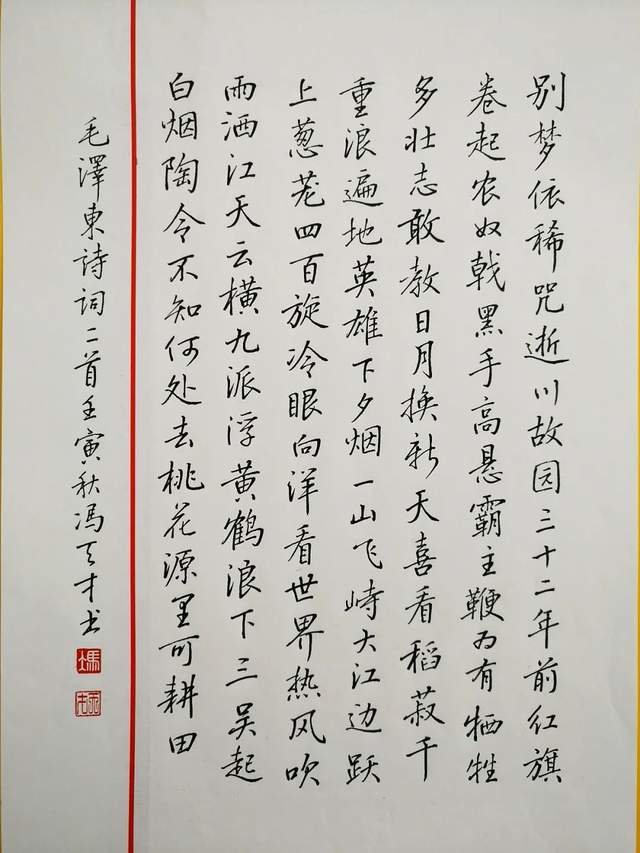 别梦依稀咒逝川故园三十二年前红旗
卷起农奴戟黑手高悬霸主鞭为有牺牲
多壮志敢教日月换新天喜看稻菽千
重浪遍地英雄下夕烟一山飞峙大江边跃
上葱茏四百旋冷眼向洋看世界热风吹
雨洒江天云横九派浮黄鹤浪下三吴起
白烟陶令不知何处去桃花源里可耕田
毛澤東詩词二首壬寅秋冯天才书